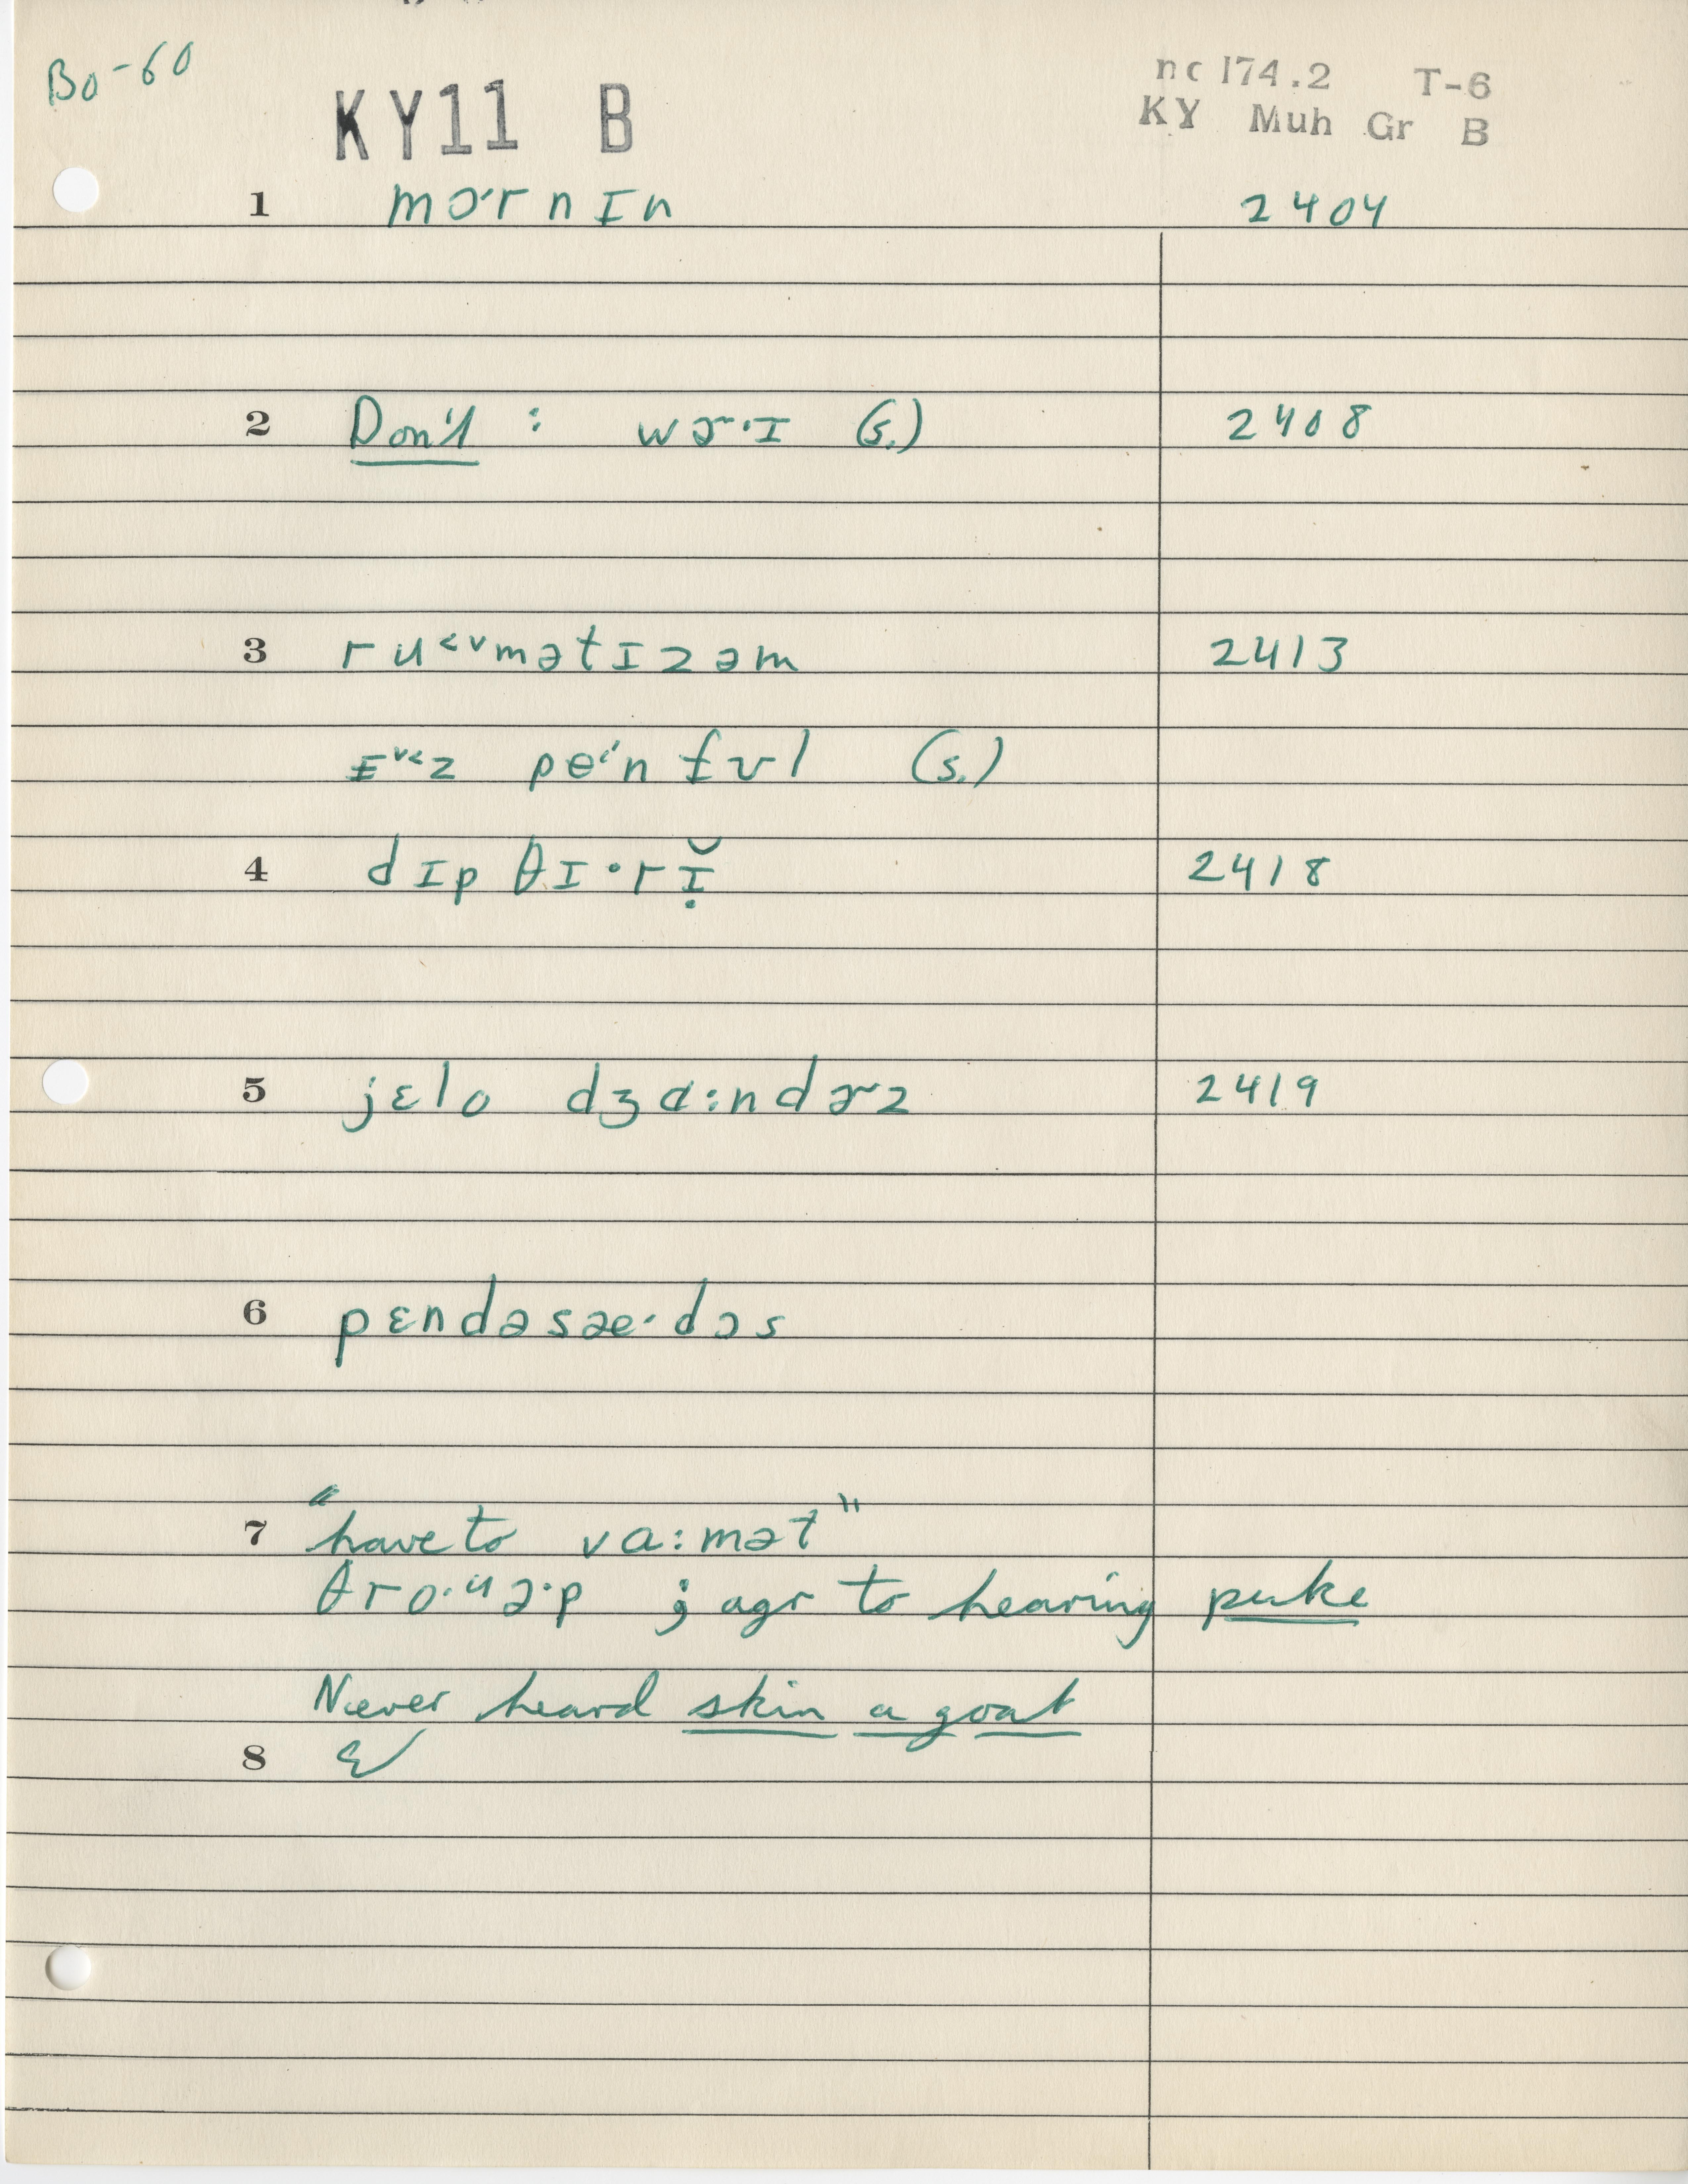 Bo-60
KY11 B
nc 174.2 T-6
KY Muh Gr B
1 mɔ'rnɪn 2404
2 Don't : wɚ·ɪ (s.) 2408
3 ruᐸᵛmətɪzəm 2413
ɪᵛᐸz pe'nfʊl (s.)
4 dɪpθɪ·rɪ̣̆ 2418
5 jɛlo dʒɑ:ndɚz 2419
6 pɛndəsæ·dəs
7 "have to va:mət"
θro·ᵘə·p ; agr to hearing puke
Never heard skin a goat
8